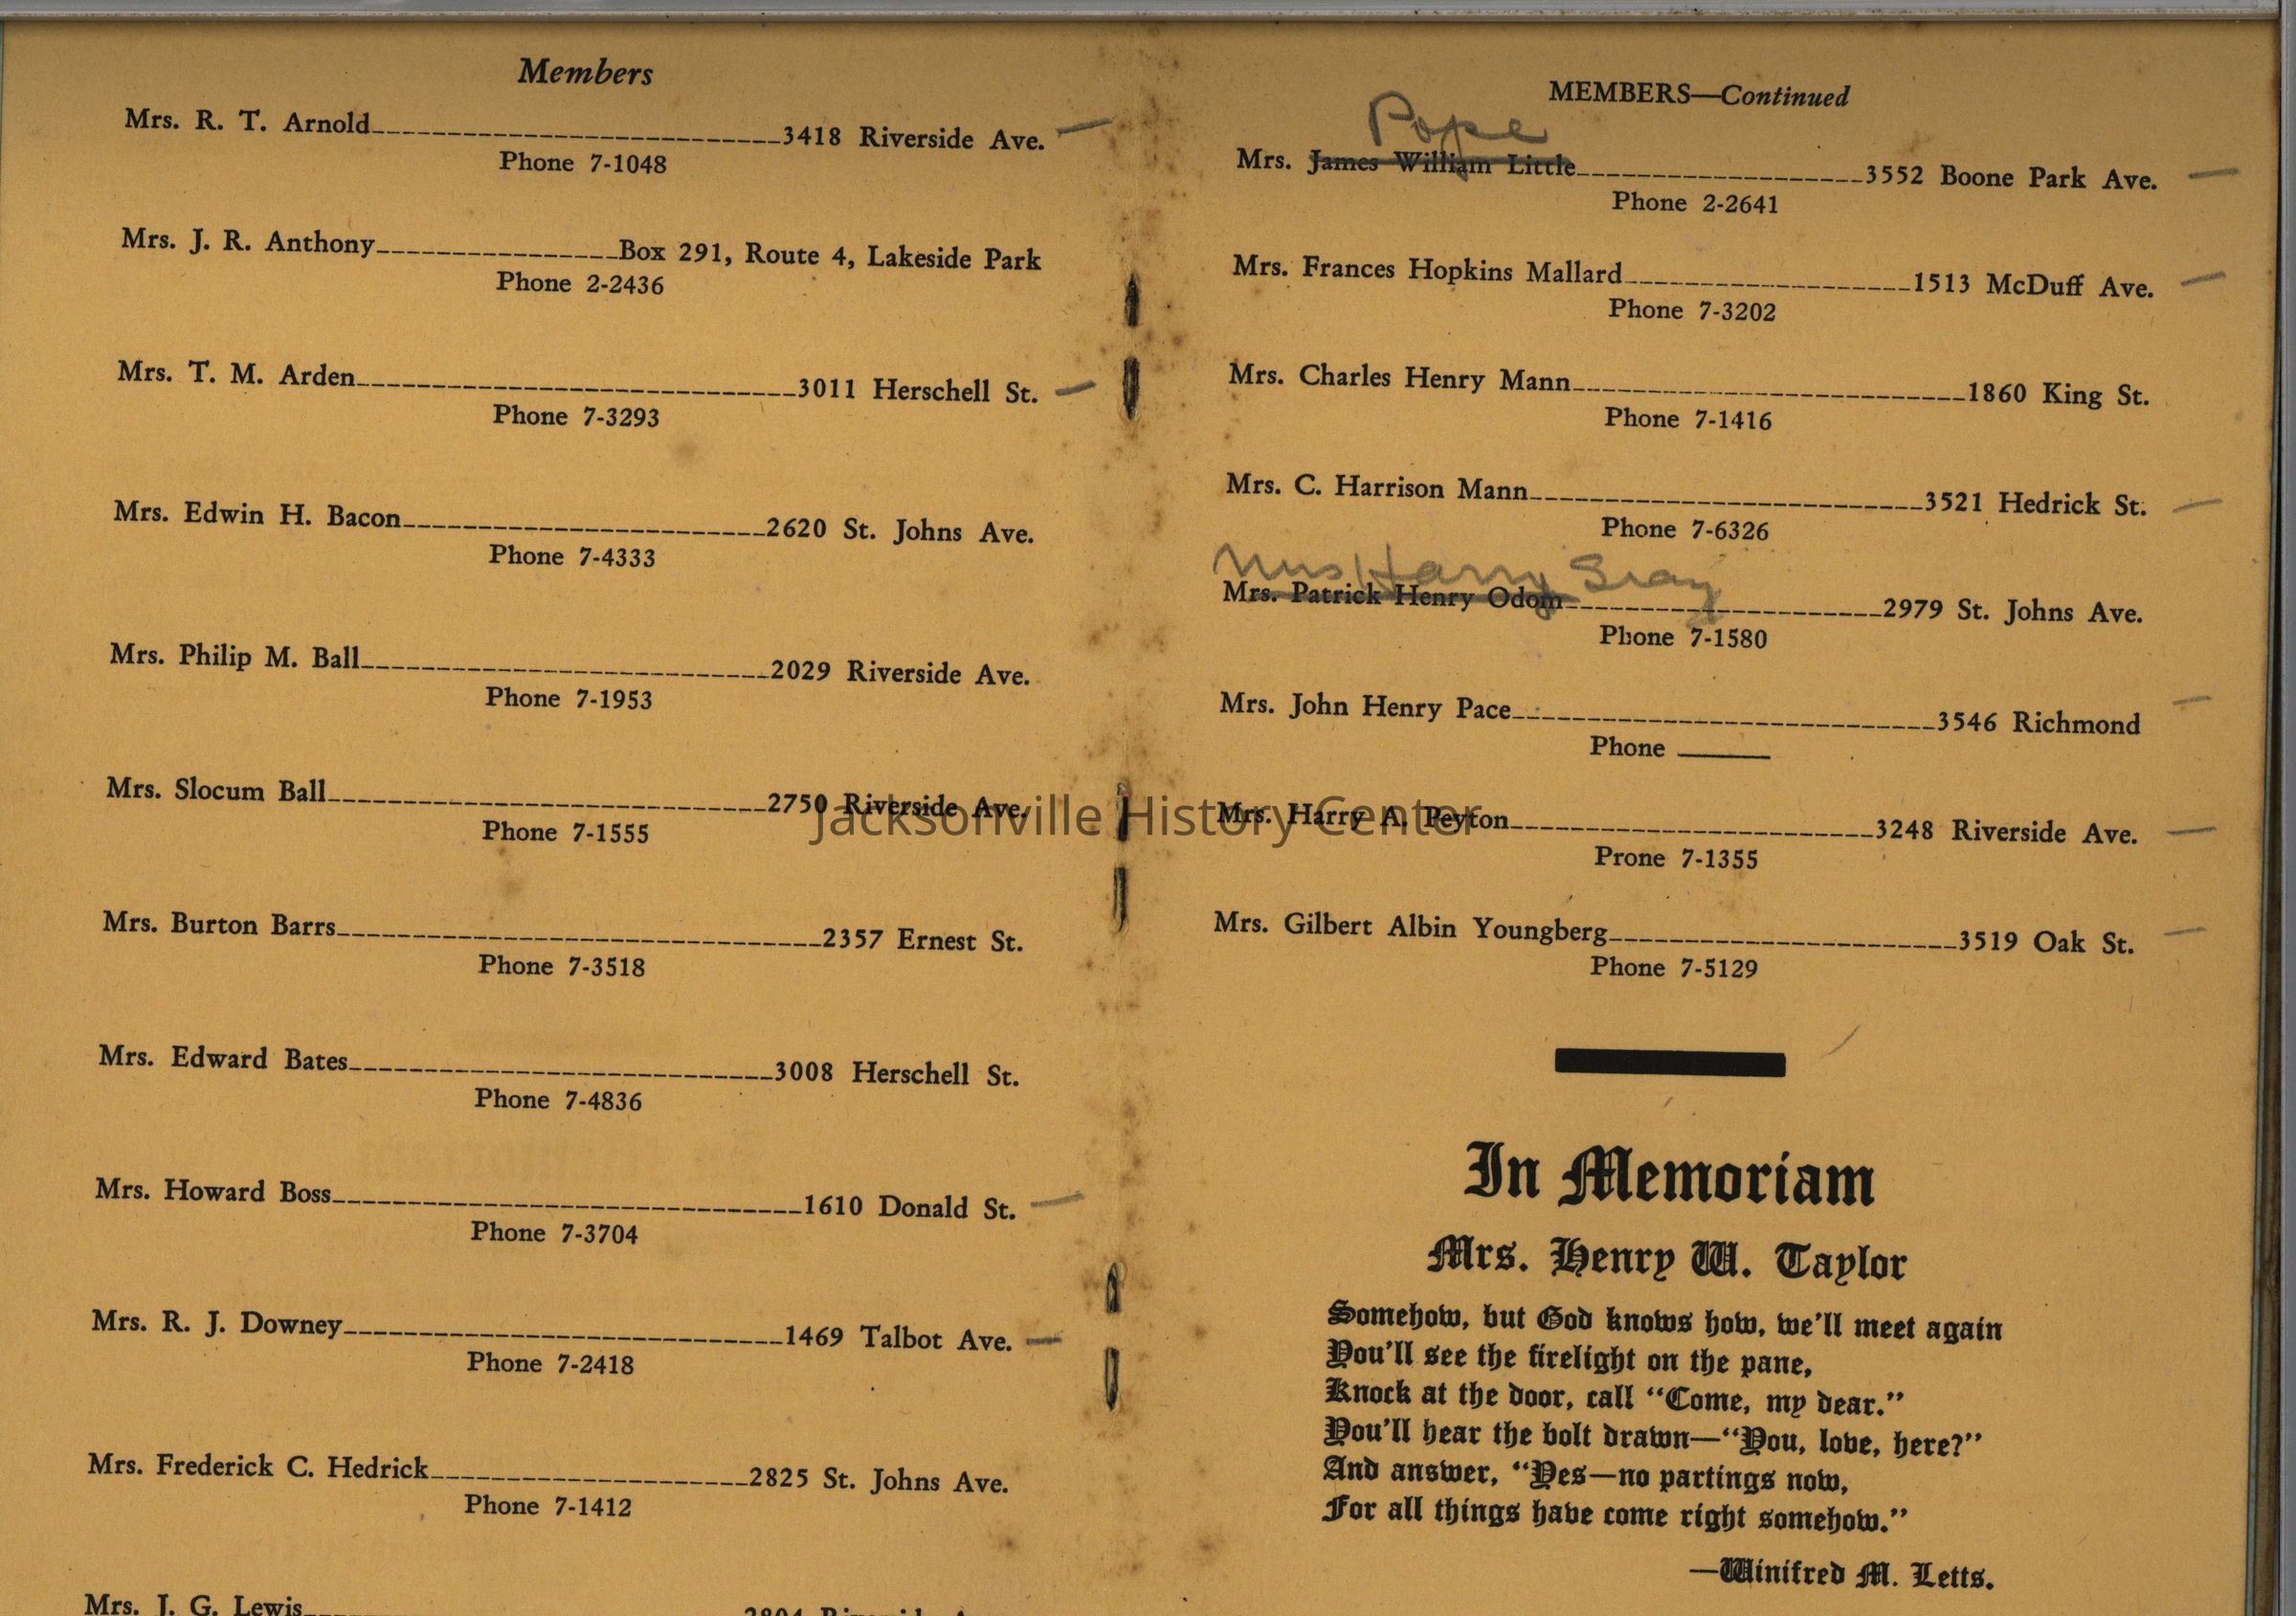 Members
Mrs. R. T. Arnold 3418 Riverside Ave.
Phone 7-1048
Mrs. J. R. Anthony Box 291, Route 4, Lakeside Park
Phone 2-2436
Mrs. T. M. Arden 3011 Herschell St.
Phone 7-3293
Mrs. Edwin H. Bacon 2620 St. Johns Ave.
Phone 7-4333
Mrs. Philip M. Ball 2029 Riverside Ave.
Phone 7-1953
Mrs. Slocum Ball 2750 Riverside Ave.
Phone 7-1555
Mrs. Burton Barrs 2357 Ernest St.
Phone 7-3518
Mrs. Edward Bates 3008 Herschell St.
Phone 7-4836
Mrs. Howard Boss 1610 Donald St.
Phone 7-3704
Mrs. R. J. Downey 1469 Talbot Ave.
Phone 7-2418
Mrs. Frederick C. Hedrick 2825 St. Johns Ave.
Phone 7-1412
Mrs. J. G. Lewis
MEMBERS—Continued
Pope
Mrs. James William Little 3552 Boone Park Ave.
Phone 2-2641
Mrs. Frances Hopkins Mallard 1513 McDuff Ave.
Phone 7-3202
Mrs. Charles Henry Mann 1860 King St.
Phone 7-1416
Mrs. C. Harrison Mann 3521 Hedrick St.
Phone 7-6326
Mrs Harry Gray
Mrs. Patrick Henry Odom 2979 St. Johns Ave.
Phone 7-1580
Mrs. John Henry Pace 3546 Richmond
Phone
Mrs. Harry A. Peyton 3248 Riverside Ave.
Prone 7-1355
Mrs. Gilbert Albin Youngberg 3519 Oak St.
Phone 7-5129
In Memoriam
Mrs. Henry W. Taylor
Somehow, but God knows how, we'll meet again
You'll see the firelight on the pane,
Knock at the door, call "Come, my dear."
You'll hear the bolt drawn—"You, love, here?"
And answer, "Yes—no partings now,
For all things have come right somehow."
—Winifred M. Letts.
Jacksonville History Center